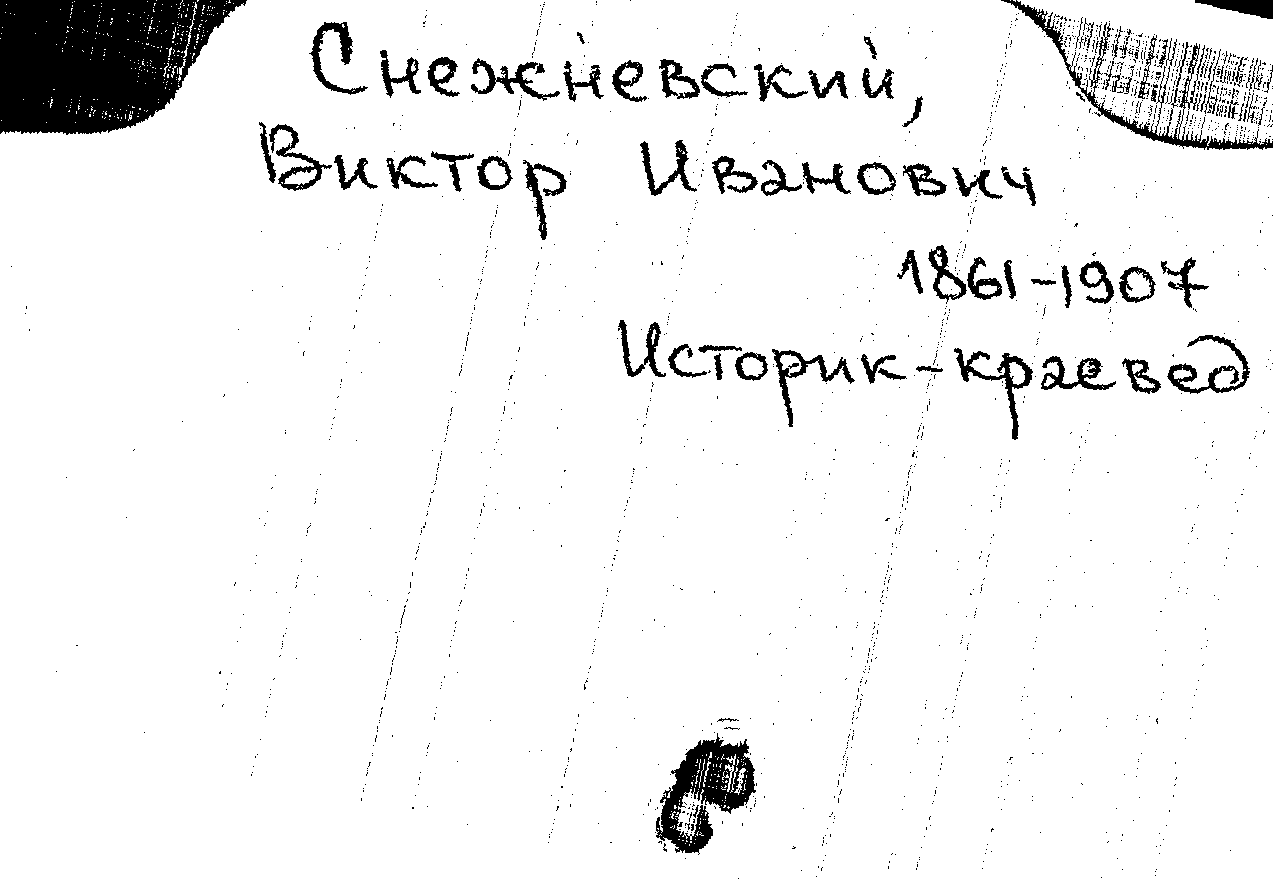 Снежневский,
Виктор Иванович
1861-1907
Историк-краевед